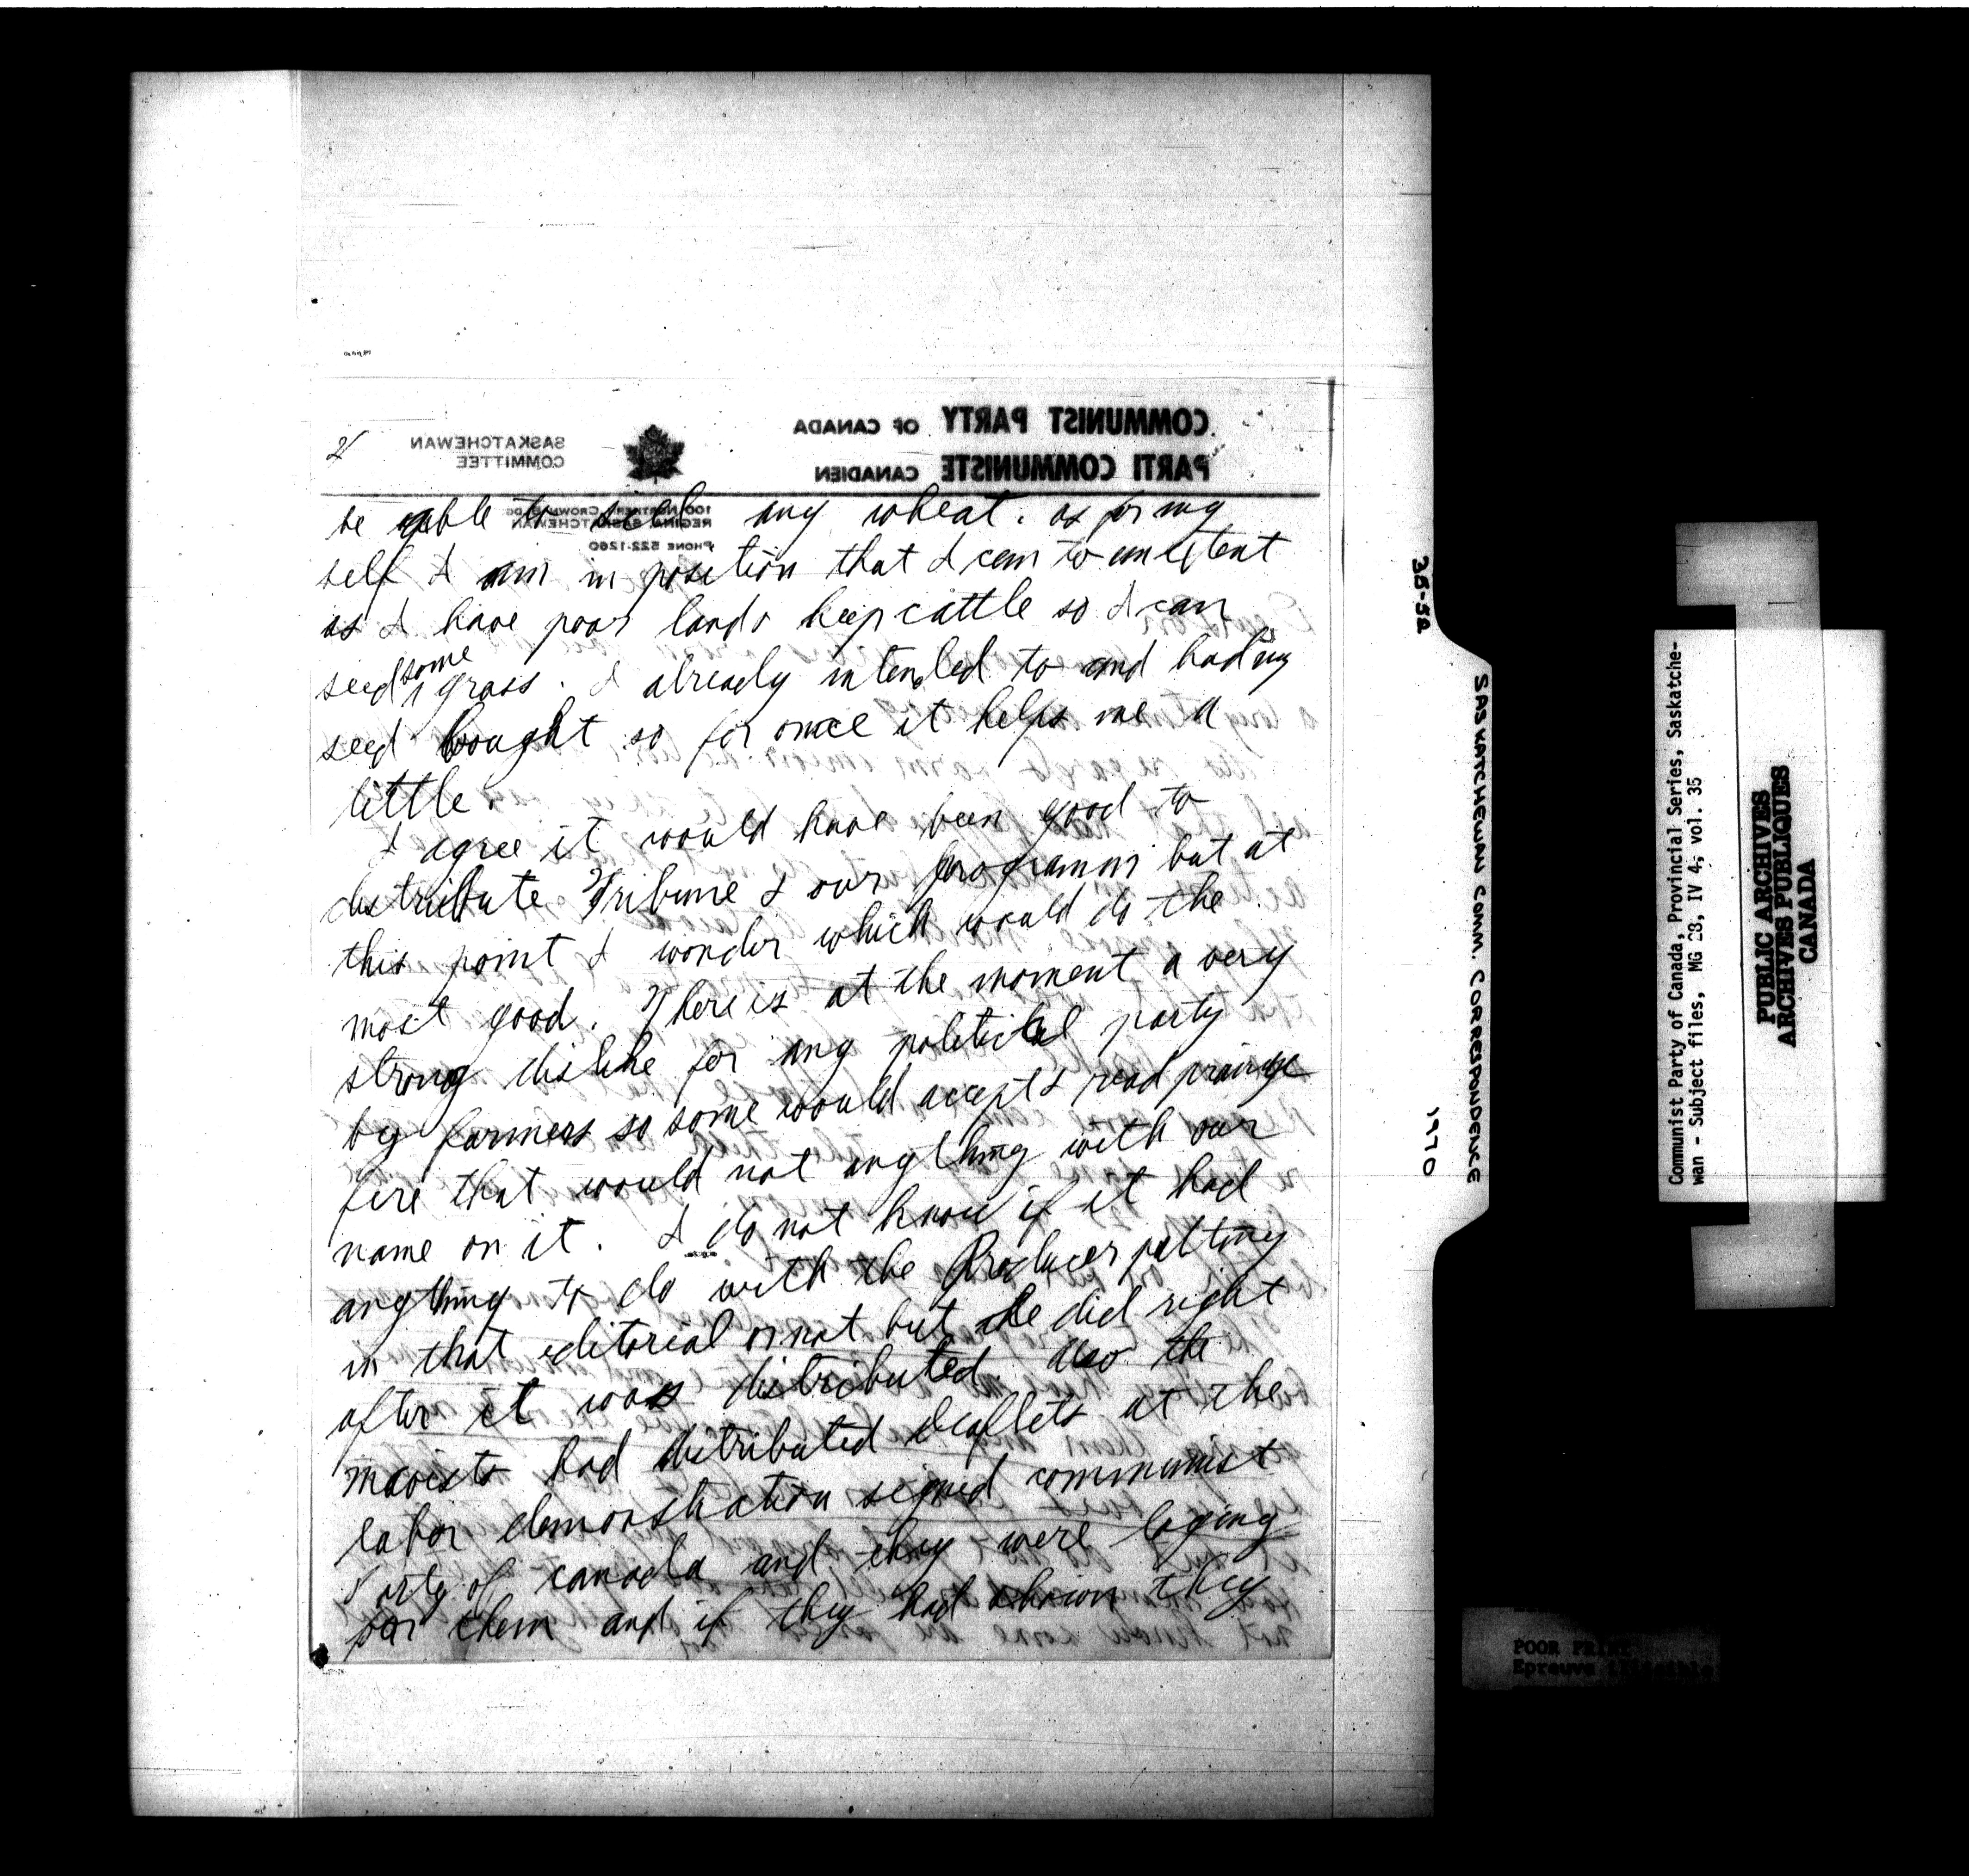 COMMUNIST PARTY OF CANADA
PARTI COMMUNISTE CANADIEN
SASKATCHEWAN
COMMITTEE
REGINA, SASKATCHEWAN
PHONE 522-1260
2/
be able to sell any wheat. as for my
self I am in position that I can to an extent
as I have poor lands keep cattle so I can
seed some grass. I already intended to and had my
seed bought so for once it helps me a
little.
I agree it would have been good to
distribute Tribune & our programm but at
this point I wonder which would do the
most good. There is at the moment a very
strong dislike for any political party
by farmers so some would accept & read prairie
fire that would not anything with our
name on it. I do not know if it had
anything to do with the Producer putting
in that editorial or not but he did right
after it was distributed. also the
maoists had distributed leaflets at the
labor demonstration signed communist
Party of canada and they were
for them and if they had shown they
38-52
SASKATCHEWAN COMM. CORRESPONDENCE
1970
Communist Party of Canada, Provincial Series, Saskatche-
wan - Subject files, MG 28, IV 4, vol. 35
PUBLIC ARCHIVES
ARCHIVES PUBLIQUES
CANADA
POOR PRINT
Epreuve illisible